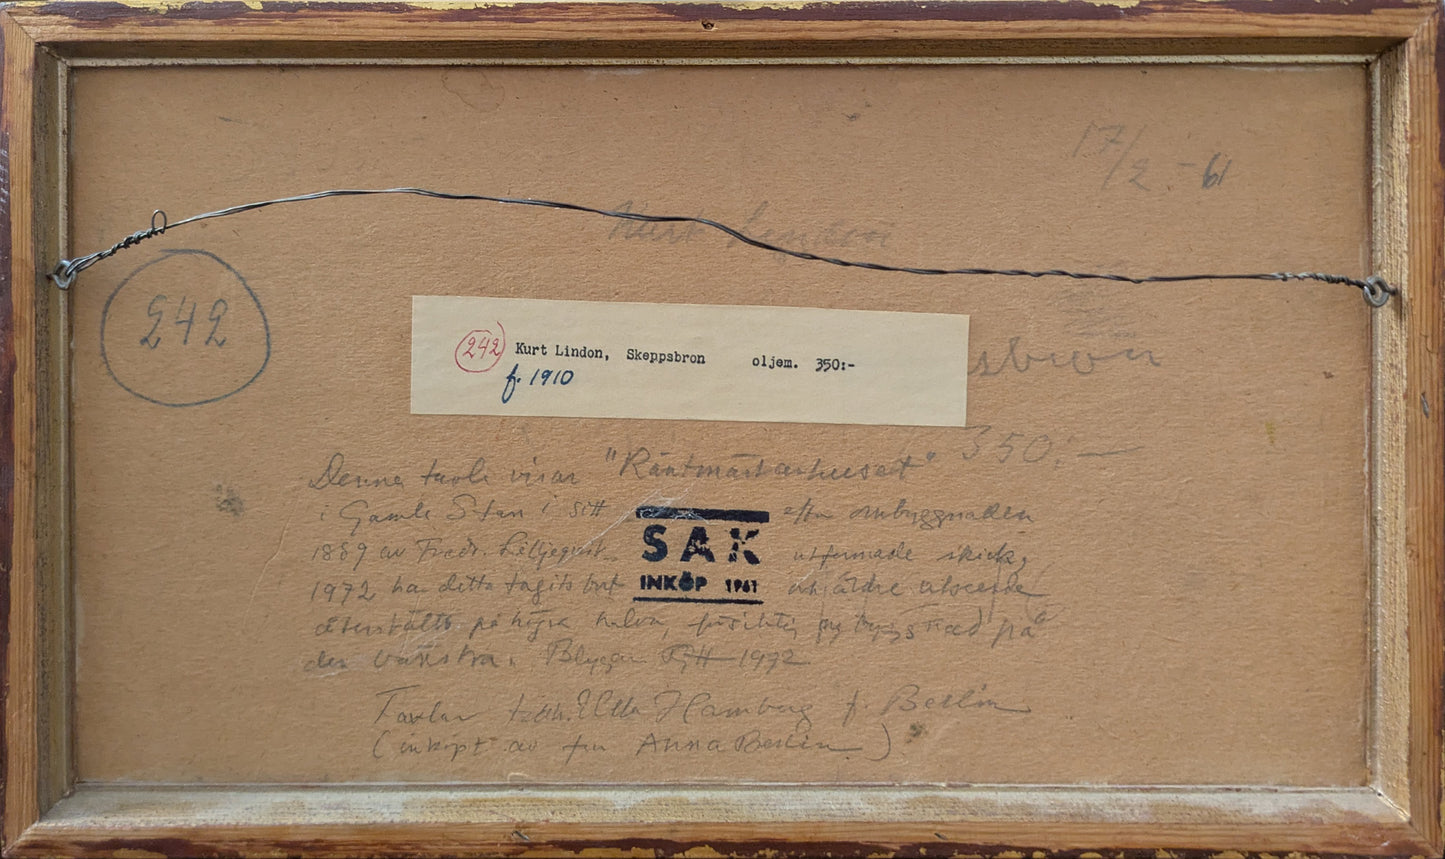 17/2 -61
Kurt Lindon
242
242 Kurt Lindon, Skeppsbron oljem. 350:-
f. 1910
sbron
350:-
Denna tavla visar "Räntmästarhuset"
i Gamla Stan i sitt efter ombyggnaden
1889 av Fredr. Liljeqvist utformade skick,
1972 har detta tagits bort och äldre utseende
återställts på högra halva, försiktig på
den vänstra. Bygger 1972
SAK
INKÖP 1961
Tavlan tillh. Ulla Hamburg f. Berlin
(inköpt av fru Anna Berlin)